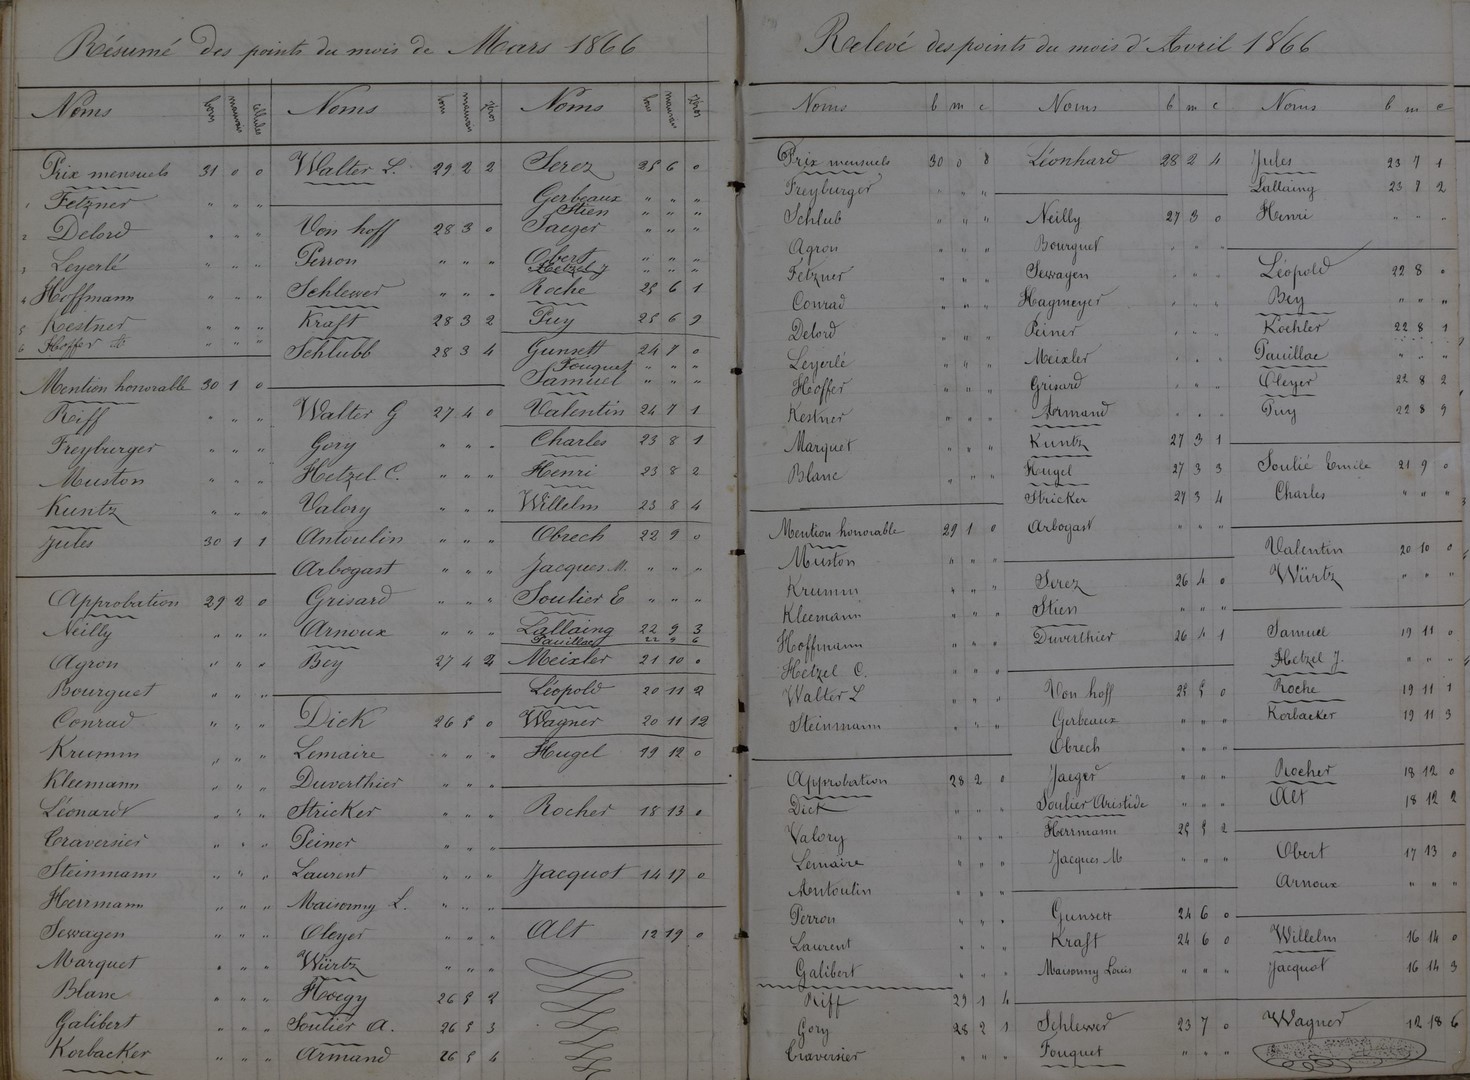 Résumé des points du mois de Mars 1866
Noms bons mauvais cellules
Prix mensuels 31 0 0
1 Fetzner " " "
2 Delord " " "
3 Leyerlé " " "
4 Hoffmann " " "
5 Kestner " " "
6 Hoffer " " "
Mention honorable 30 1 0
Riff " " "
Freyburger " " "
Muston " " "
Kuntz " " "
Jules 30 1 1
Approbation 29 2 0
Neilly " " "
Agron " " "
Bourguet " " "
Conrad " " "
Krumm " " "
Kleemann " " "
Léonardt " " "
Craversier " " "
Steinmann " " "
Herrmann " " "
Sewagen " " "
Marquet " " "
Blanc " " "
Galibert " " "
Korbacker " " "
Noms bons mauvais zéros
Walter L. 29 2 2
Von hoff 28 3 0
Perron " " "
Schlewer " " "
Kraft 28 3 2
Schlubb 28 3 4
Walter G 27 4 0
Gory " " "
Hetzel C. " " "
Valory " " "
Antoulin " " "
Arbogast " " "
Grisard " " "
Arnoux " " "
Bey 27 4 2
Dick 26 5 0
Lemaire " " "
Duverthier " " "
Stricker " " "
Peiner " " "
Laurent " " "
Maisonny L. " " "
Oleyer " " "
Würtz " " "
Hoegy 26 5 2
Soulier A. 26 5 3
Armand 26 5 4
Noms bons mauvais zéros
Serez 25 6 0
Gerbeaux " " "
Stien " " "
Jaeger " " "
Obert " " "
Hetzel J " " "
Roche 25 6 1
Puy 25 6 9
Gunsett 24 7 0
Fouquet " " "
Samuel " " "
Valentin 24 7 1
Charles 23 8 1
Henri 23 8 2
Willelm 23 8 4
Obrech 22 9 0
Jacques M. " " "
Soulier E " " "
Lallaing 22 9 3
Pavillac 22 9 6
Meixler 21 10 0
Léopold 20 11 2
Wagner 20 11 12
Hugel 19 12 0
Rocher 18 13 0
Jacquot 14 17 0
Alt 12 19 0
Relevé des points du mois d'Avril 1866
Noms b m c
Prix mensuels 30 0 0
Freyburger " " "
Schlub " " "
Agron " " "
Fetzner " " "
Conrad " " "
Delord " " "
Leyerlé " " "
Hoffer " " "
Kestner " " "
Marquet " " "
Blanc " " "
Mention honorable 29 1 0
Muston " " "
Krumm " " "
Kleemann " " "
Hoffmann " " "
Hetzel C. " " "
Walter L " " "
Steinmann " " "
Approbation 28 2 0
Dick " " "
Valory " " "
Lemaire " " "
Antoulin " " "
Perron " " "
Laurent " " "
Galibert " " "
Riff 29 1 4
Gory 28 2 1
Craversier " " "
Noms b m c
Léonhard 28 2 4
Neilly 27 3 0
Bourguet " " "
Sewagen " " "
Hagmeyer " " "
Peiner " " "
Meixler " " "
Grisard " " "
Armand " " "
Kuntz 27 3 1
Hugel 27 3 3
Stricker 27 3 4
Arbogast " " "
Serez 26 4 0
Stien " " "
Duverthier 26 4 1
Von hoff 25 5 0
Gerbeaux " " "
Obrech " " "
Jaeger " " "
Soulier Aristide " " "
Herrmann 25 5 2
Jacques M " " "
Gunsett 24 6 0
Kraft 24 6 0
Maisonny Louis " " "
Schlewer 23 7 0
Fouquet " " "
Noms b m c
Jules 23 7 1
Lallaing 23 7 2
Henri " " "
Léopold 22 8 0
Bey " " "
Koehler 22 8 1
Pauillac " " "
Oleyer 22 8 2
Puy 22 8 9
Soulié Emile 21 9 0
Charles " " "
Valentin 20 10 0
Würtz " " "
Samuel 19 11 0
Hetzel J. " " "
Roche 19 11 1
Korbacker 19 11 3
Rocher 18 12 0
Alt 18 12 2
Obert 17 13 0
Arnoux " " "
Willelm 16 14 0
Jacquot 16 14 3
Wagner 12 18 6